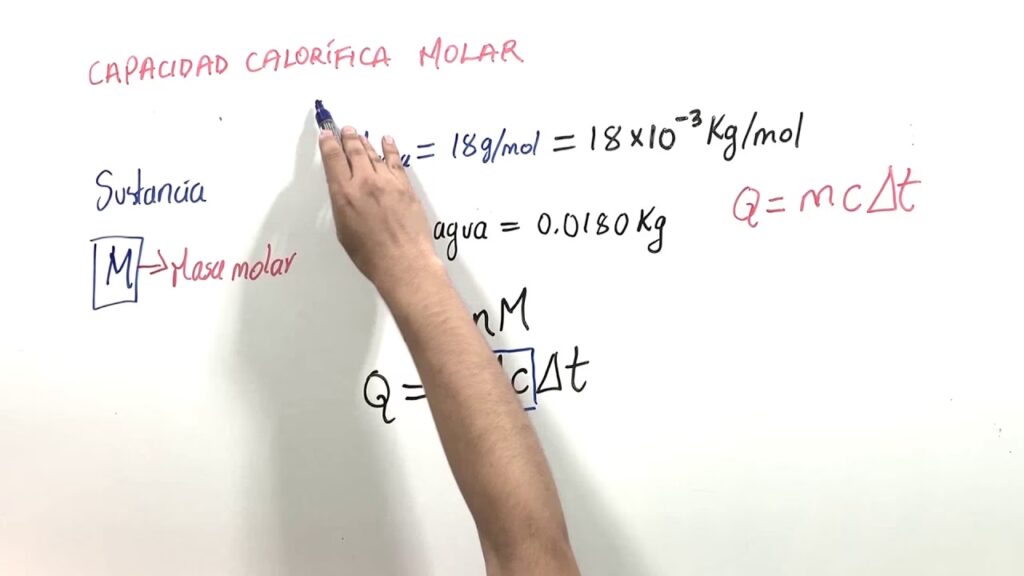 CAPACIDAD CALORÍFICA MOLAR
= 18g/mol = 18×10⁻³ Kg/mol
Sustancia
Q = m c Δt
agua = 0.0180 Kg
M → Masa molar
nM
Q = c Δt